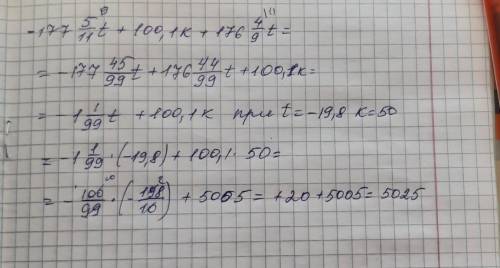 -177 5/11 t + 100,1к + 176 4/9 t =
= -177 45/99 t + 176 44/99 t + 100,1к =
= -1 1/99 t + 100,1к при t = -19,8 к = 50
= -1 1/99 · (-19,8) + 100,1 · 50 =
= -100/99 · (-198/10) + 5005 = +20 + 5005 = 5025